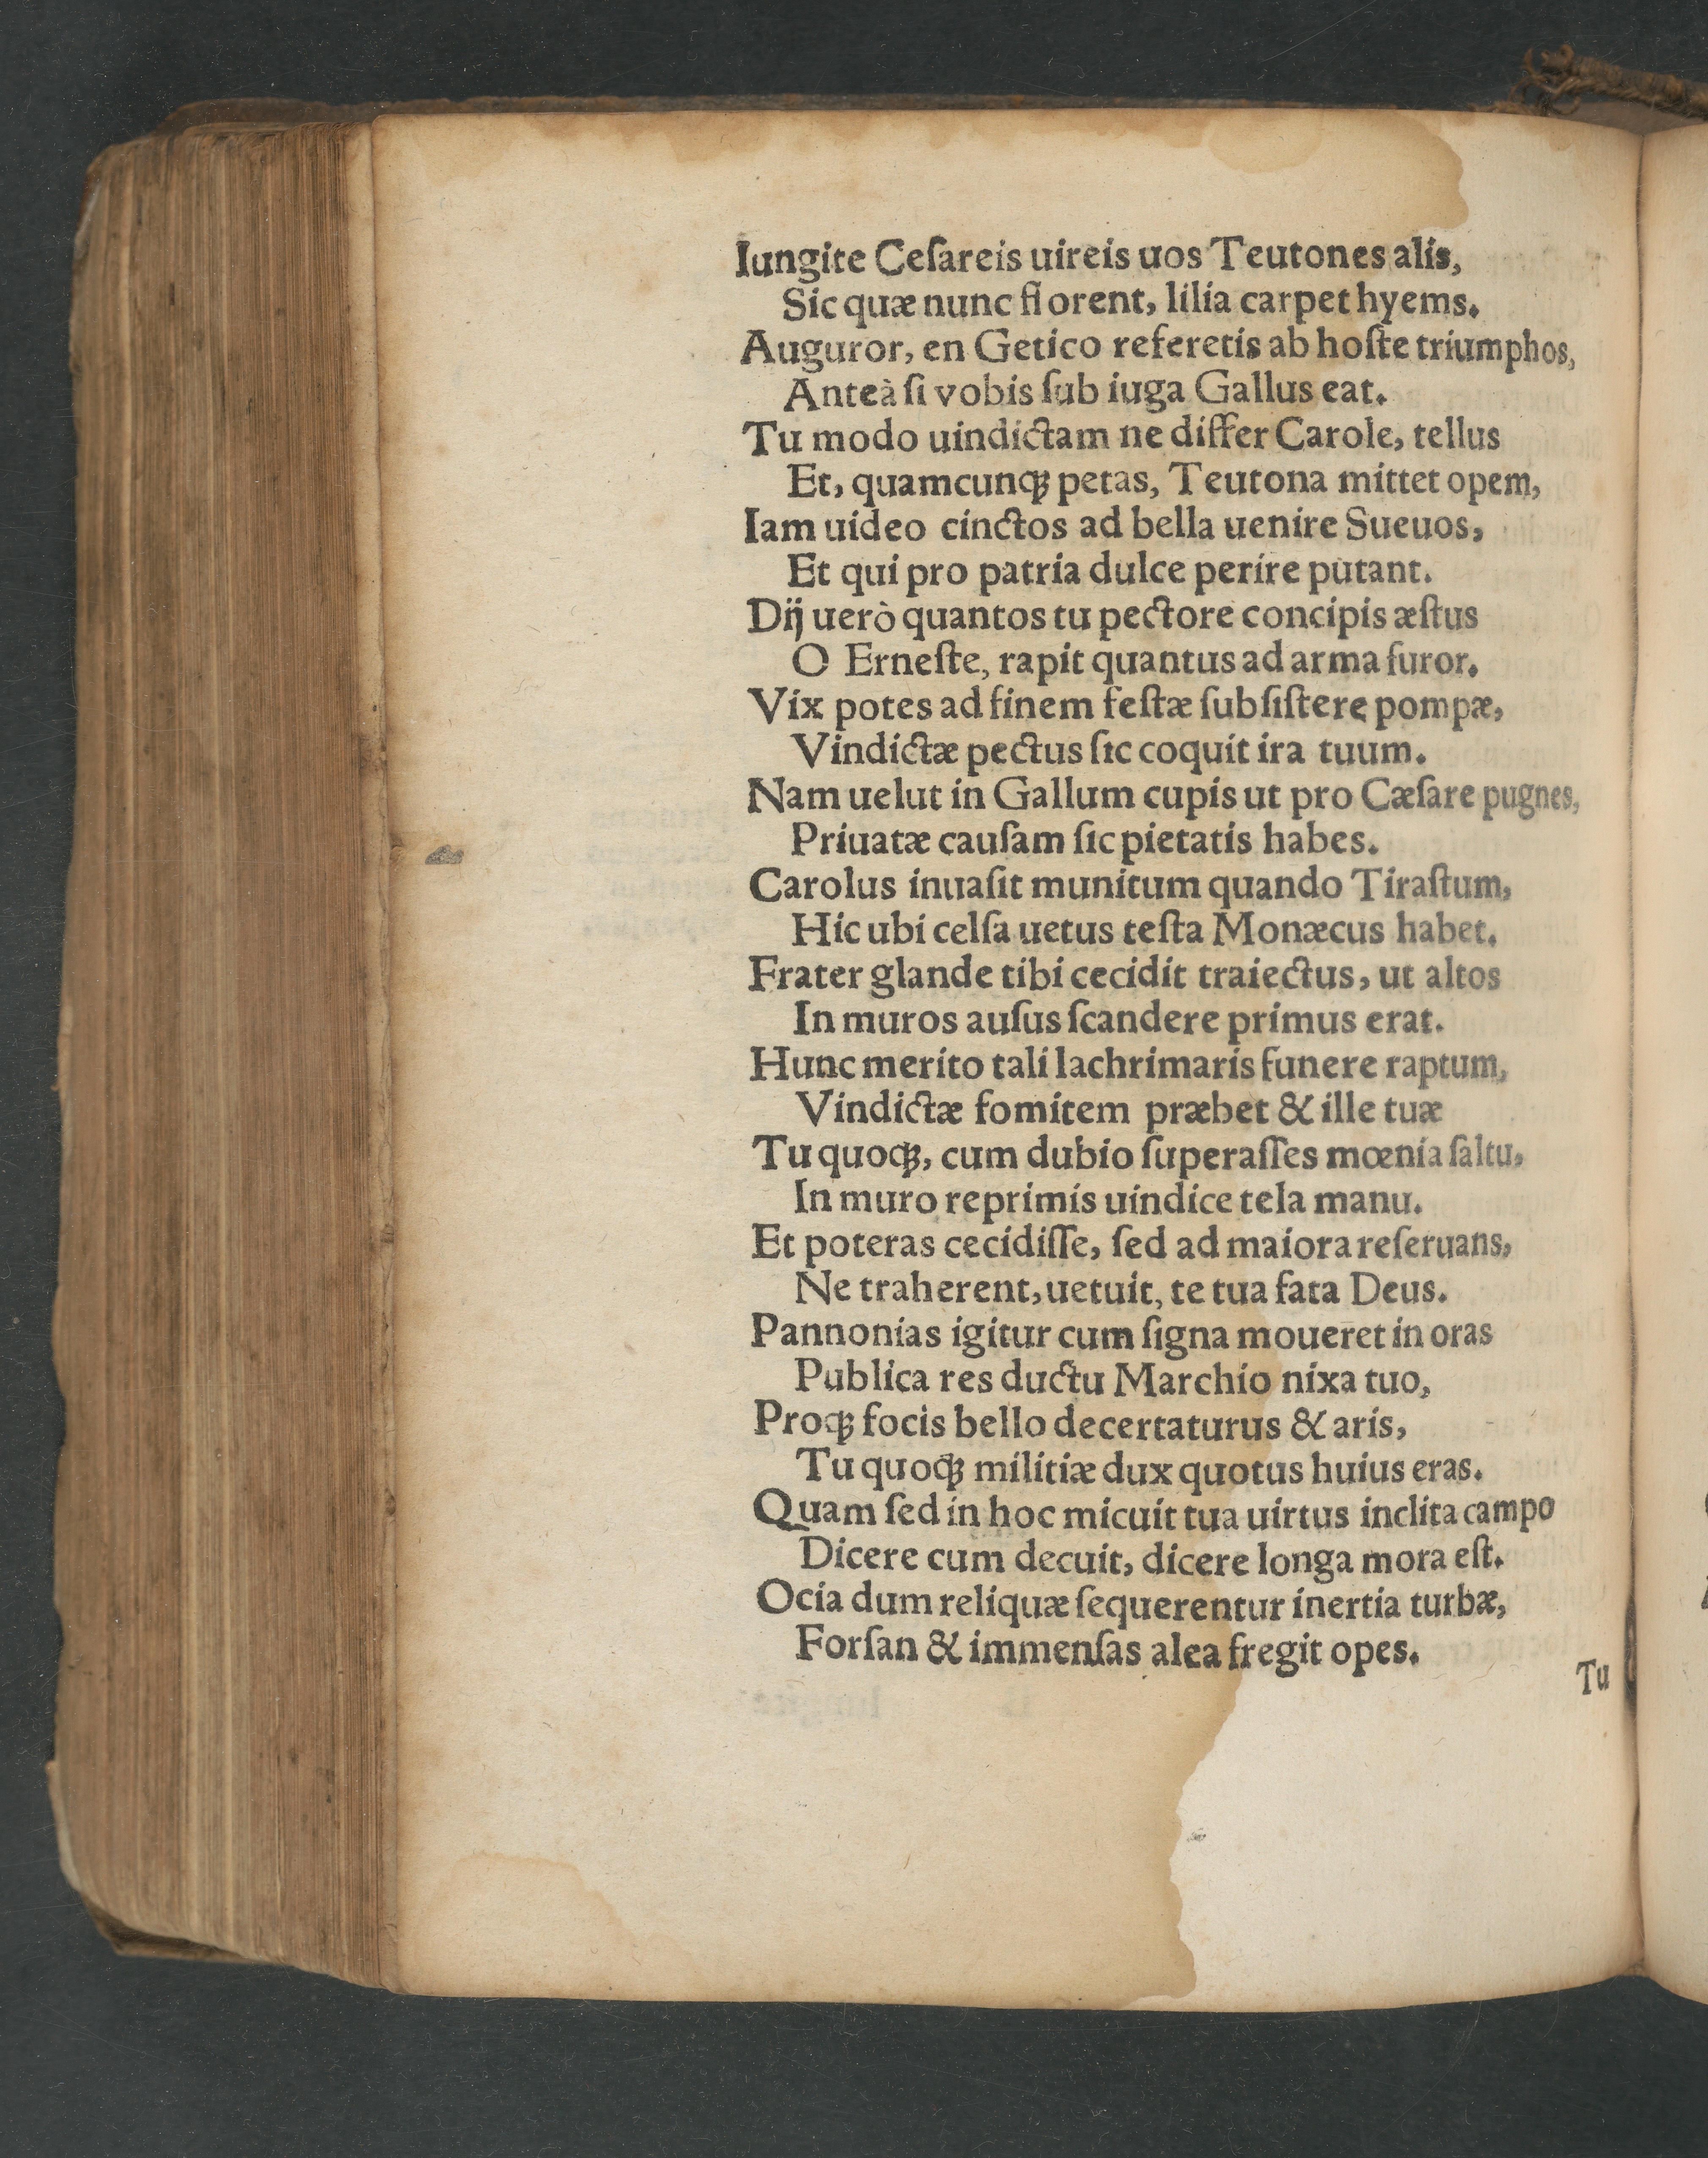 Iungite Ceſareis uireis uos Teutones alis,
Sic quæ nunc florent, lilia carpet hyems.
Auguror, en Getico referetis ab hoſte triumphos,
Anteà ſi vobis ſub iuga Gallus eat.
Tu modo uindictam ne differ Carole, tellus
Et, quamcunqꝫ petas, Teutona mittet opem,
Iam uideo cinctos ad bella uenire Sueuos,
Et qui pro patria dulce perire putant.
Dij uerò quantos tu pectore concipis æſtus
O Erneſte, rapit quantus ad arma furor.
Vix potes ad finem feſtæ ſubſiſtere pompæ,
Vindictæ pectus ſic coquit ira tuum.
Nam uelut in Gallum cupis ut pro Cæſare pugnes,
Priuatæ cauſam ſic pietatis habes.
Carolus inuaſit munitum quando Tiraſtum,
Hic ubi celſa uetus teſta Monæcus habet.
Frater glande tibi cecidit traiectus, ut altos
In muros auſus ſcandere primus erat.
Hunc merito tali lachrimaris funere raptum,
Vindictæ fomitem præbet & ille tuæ
Tu quoqꝫ, cum dubio ſuperaſſes mœnia ſaltu,
In muro reprimis uindice tela manu.
Et poteras cecidiſſe, ſed ad maiora reſeruans,
Ne traherent, uetuit, te tua fata Deus.
Pannonias igitur cum ſigna moueret in oras
Publica res ductu Marchio nixa tuo,
Proqꝫ focis bello decertaturus & aris,
Tu quoqꝫ militiæ dux quotus huius eras.
Quam ſed in hoc micuit tua uirtus inclita campo
Dicere cum decuit, dicere longa mora eſt.
Ocia dum reliquæ ſequerentur inertia turbæ,
Forſan & immenſas alea fregit opes.
Tu